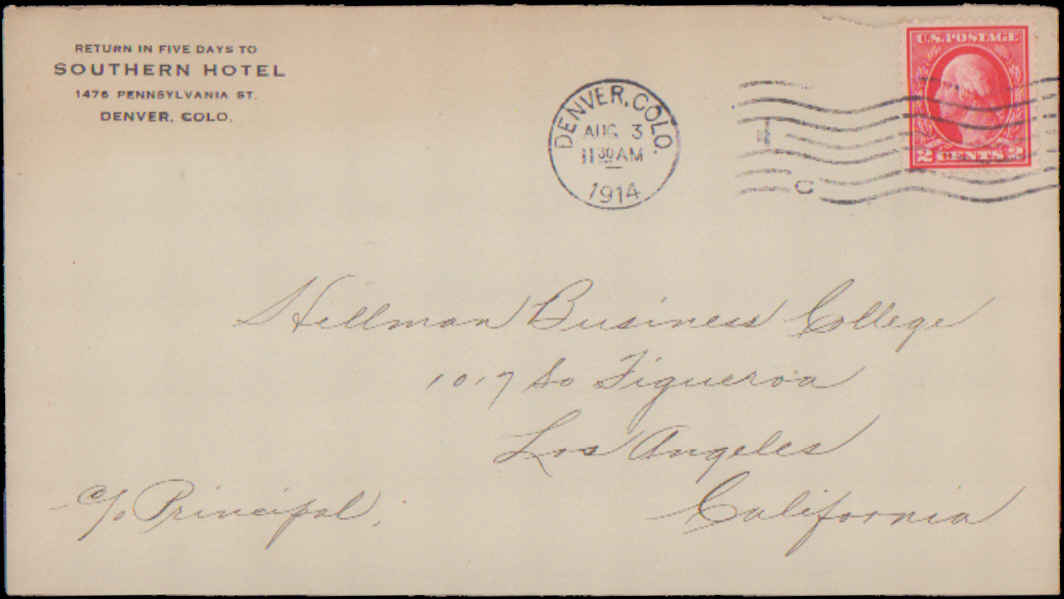 RETURN IN FIVE DAYS TO
SOUTHERN HOTEL
1476 PENNSYLVANIA ST.
DENVER, COLO.
DENVER, COLO.
AUG 3
11 30 AM
1914
U.S. POSTAGE
2 CENTS 2
Hillman Business College
1017 So Figueroa
Los Angeles
California
c/o Principal.